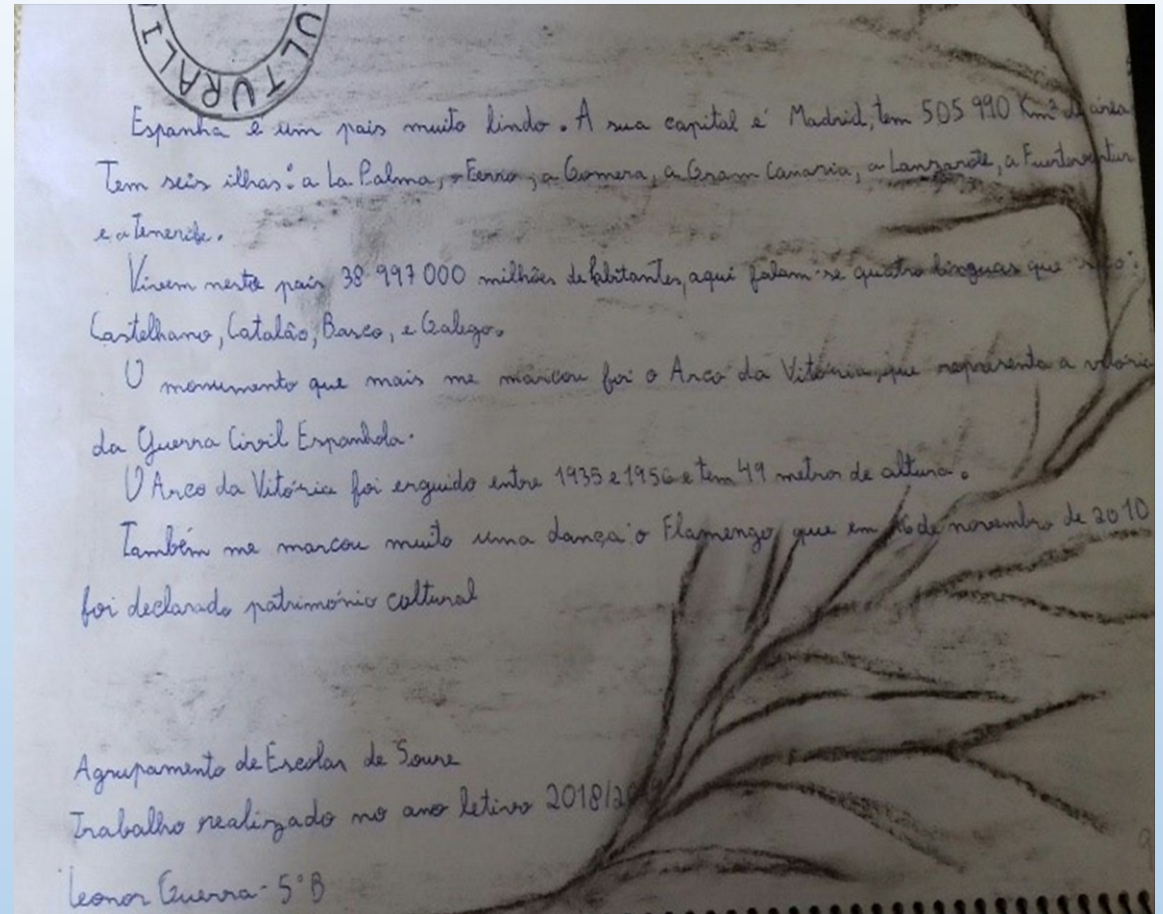 ULTURALI
Espanha é um pais muito lindo. A sua capital é Madrid, tem 505 990 Km² de área
Tem seis ilhas: a La Palma, a Ferro, a Gomera, a Gram Canaria, a Lanzarote, a Fuerteventur
e a Tenerife.
Vivem neste país 38 997 000 milhões de habitantes, aqui falam-se quatro línguas que são:
Castelhano, Catalão, Basco, e Galego.
O monumento que mais me marcou foi o Arco da Vitória, que representa a vitória
da Guerra Civil Espanhola.
O Arco da Vitória foi erguido entre 1935 e 1956 e tem 49 metros de altura.
Também me marcou muito uma dança o Flamengo que em 16 de novembro de 2010
foi declarado património cultural
Agrupamento de Escolas de Soure
Trabalho realizado no ano letivo 2018/2
Leonor Guerra - 5ºB
9